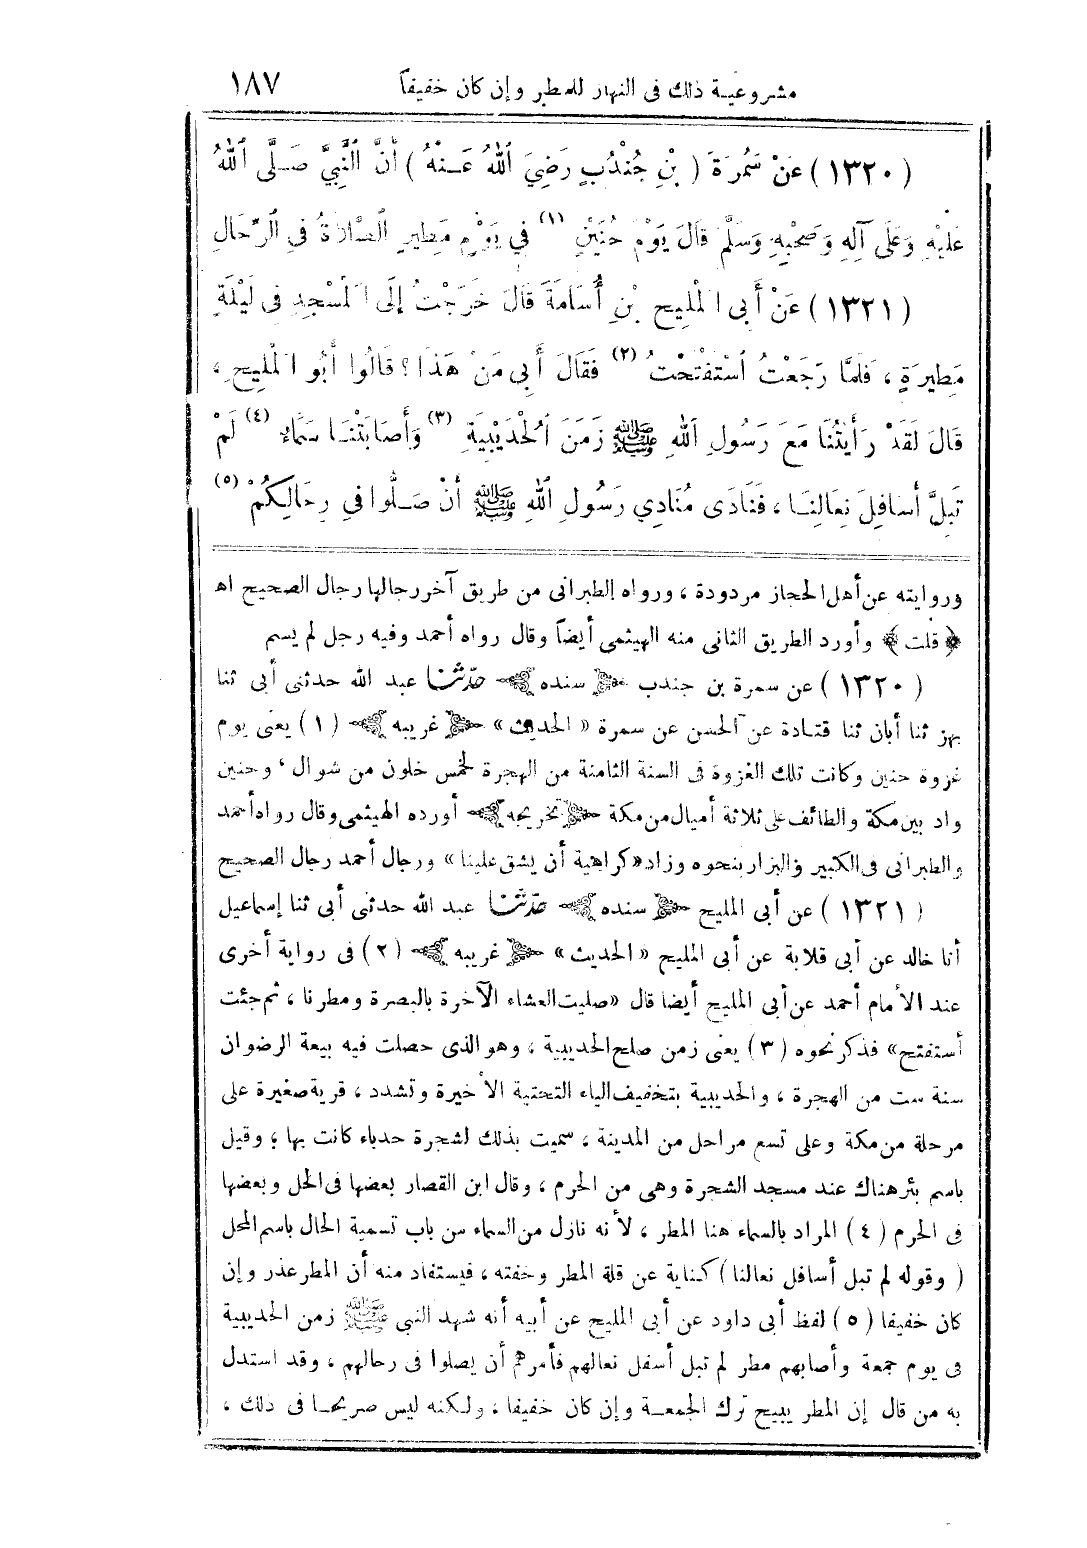 مشروعية ذلك فى النهار للمطر وإن كان خفيفاً ١٨٧
(١٣٢٠) عَنْ سَمُرَةَ (بْنِ جُنْدُبٍ رَضِيَ اللهُ عَنْهُ) أَنَّ النَّبِيَّ صَلَّى اللهُ
عَلَيْهِ وَعَلَى آلِهِ وَصَحْبِهِ وَسَلَّمَ قَالَ يَوْمَ حُنَيْنٍ (١) فِي يَوْمٍ مَطِيرٍ الصَّلَاةُ فِي الرِّحَالِ
(١٣٢١) عَنْ أَبِي الْمَلِيحِ بْنِ أُسَامَةَ قَالَ خَرَجْتُ إِلَى الْمَسْجِدِ فِي لَيْلَةٍ
مَطِيرَةٍ ، فَلَمَّا رَجَعْتُ اسْتَفْتَحْتُ (٢) فَقَالَ أَبِي مَنْ هَذَا ؟ قَالُوا أَبُو الْمَلِيحِ ،
قَالَ لَقَدْ رَأَيْتُنَا مَعَ رَسُولِ اللهِ ﷺ زَمَنَ الْحُدَيْبِيَةِ (٣) وَأَصَابَتْنَا سَمَاءٌ (٤) لَمْ
تَبُلَّ أَسَافِلَ نِعَالِنَا ، فَنَادَى مُنَادِي رَسُولِ اللهِ ﷺ أَنْ صَلُّوا فِي رِحَالِكُمْ (٥)
وروايته عن أهل الحجاز مردودة ، ورواه الطبرانى من طريق آخر رجالها رجال الصحيح اه
﴿قلت﴾ وأورد الطريق الثانى منه الهيثمى أيضاً وقال رواه أحمد وفيه رجل لم يسم
(١٣٢٠) عن سمرة بن جندب ﴿سنده﴾ حدّثنا عبد الله حدثنى أبى ثنا
بهز ثنا أبان ثنا قتادة عن الحسن عن سمرة « الحديث » ﴿غريبه﴾ (١) يعنى يوم
غزوة حنين وكانت تلك الغزوة فى السنة الثامنة من الهجرة لخمس خلون من شوال ، وحنين
واد بين مكة والطائف على ثلاثة أميال من مكة ﴿تخريجه﴾ أورده الهيثمى وقال رواه أحمد
والطبرانى فى الكبير والبزار بنحوه وزاد «كراهية أن يشق علينا» ورجال أحمد رجال الصحيح
(١٣٢١) عن أبى المليح ﴿سنده﴾ حدّثنا عبد الله حدثنى أبى ثنا إسماعيل
أنا خالد عن أبى قلابة عن أبى المليح «الحديث» ﴿غريبه﴾ (٢) فى رواية أخرى
عند الأمام أحمد عن أبى المليح أيضا قال «صليت العشاء الآخرة بالبصرة ومطرنا ، ثم جئت
أستفتح» فذكر نحوه (٣) يعنى زمن صلح الحديبية ، وهو الذى حصلت فيه بيعة الرضوان
سنة ست من الهجرة ، والحديبية بتخفيف الياء التحتية الأخيرة وتشدد ، قرية صغيرة على
مرحلة من مكة وعلى تسع مراحل من المدينة ، سميت بذلك لشجرة حدباء كانت بها ، وقيل
باسم بئر هناك عند مسجد الشجرة وهى من الحرم ، وقال ابن القصار بعضها فى الحل وبعضها
فى الحرم (٤) المراد بالسماء هنا المطر ، لأنه نازل من السماء من باب تسمية الحال باسم المحل
( وقوله لم تبل أسافل نعالنا ) كناية عن قلة المطر وخفته ، فيستفاد منه أن المطر عذر وإن
كان خفيفا (٥) لفظ أبى داود عن أبى المليح عن أبيه أنه شهد النبى ﷺ زمن الحديبية
فى يوم جمعة وأصابهم مطر لم تبل أسفل نعالهم فأمرهم أن يصلوا فى رحالهم ، وقد استدل
به من قال إن المطر يبيح ترك الجمعة وإن كان خفيفا ، ولكنه ليس صريحا فى ذلك ،